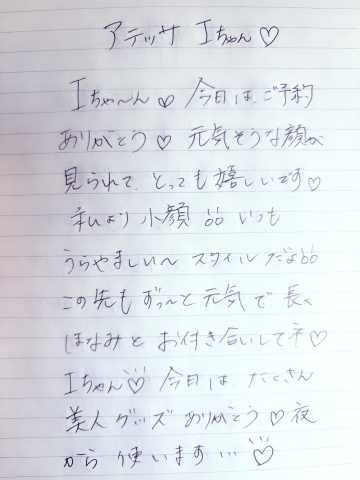 アテッサ Iちゃん♡
Iちゃ〜ん♡ 今日は、ご予約
ありがとう♡ 元気そうな顔が
見られて、とっても嬉しいです♡
私より小顔 いつも
うらやましい〜 スタイルだよ
この先もずっ〜と元気で長く
ほなみとお付き合いしてネ♡
Iちゃん♡ 今日は たくさん
美人グッズ ありがとう♡ 夜
から 使います…♡